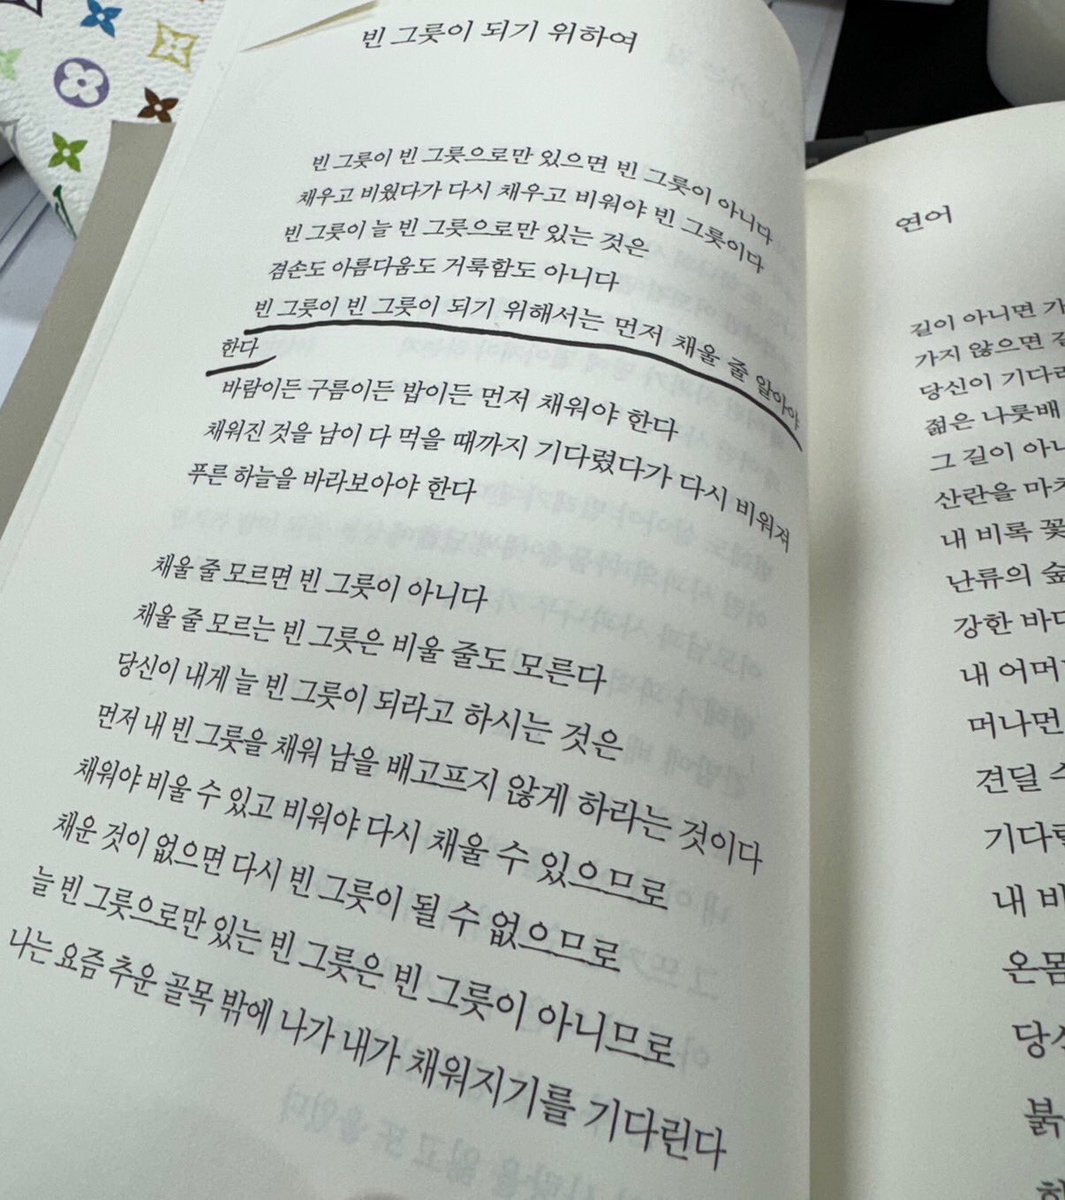 빈 그릇이 되기 위하여
빈 그릇이 빈 그릇으로만 있으면 빈 그릇이 아니다
채우고 비웠다가 다시 채우고 비워야 빈 그릇이다
빈 그릇이 늘 빈 그릇으로만 있는 것은
겸손도 아름다움도 거룩함도 아니다
빈 그릇이 빈 그릇이 되기 위해서는 먼저 채울 줄 알아야
한다
바람이든 구름이든 밥이든 먼저 채워야 한다
채워진 것을 남이 다 먹을 때까지 기다렸다가 다시 비워져
푸른 하늘을 바라보아야 한다
채울 줄 모르면 빈 그릇이 아니다
채울 줄 모르는 빈 그릇은 비울 줄도 모른다
당신이 내게 늘 빈 그릇이 되라고 하시는 것은
먼저 내 빈 그릇을 채워 남을 배고프지 않게 하라는 것이다
채워야 비울 수 있고 비워야 다시 채울 수 있으므로
채운 것이 없으면 다시 빈 그릇이 될 수 없으므로
늘 빈 그릇으로만 있는 빈 그릇은 빈 그릇이 아니므로
나는 요즘 추운 골목 밖에 나가 내가 채워지기를 기다린다
연어
길이 아니면 가
가지 않으면 길
당신이 기다리
젊은 나룻배
그 길이 아니
산란을 마치
내 비록 꽃
난류의 숲
강한 바다
내 어머
머나먼
견딜 수
기다
내 비
온몸
당신
붉